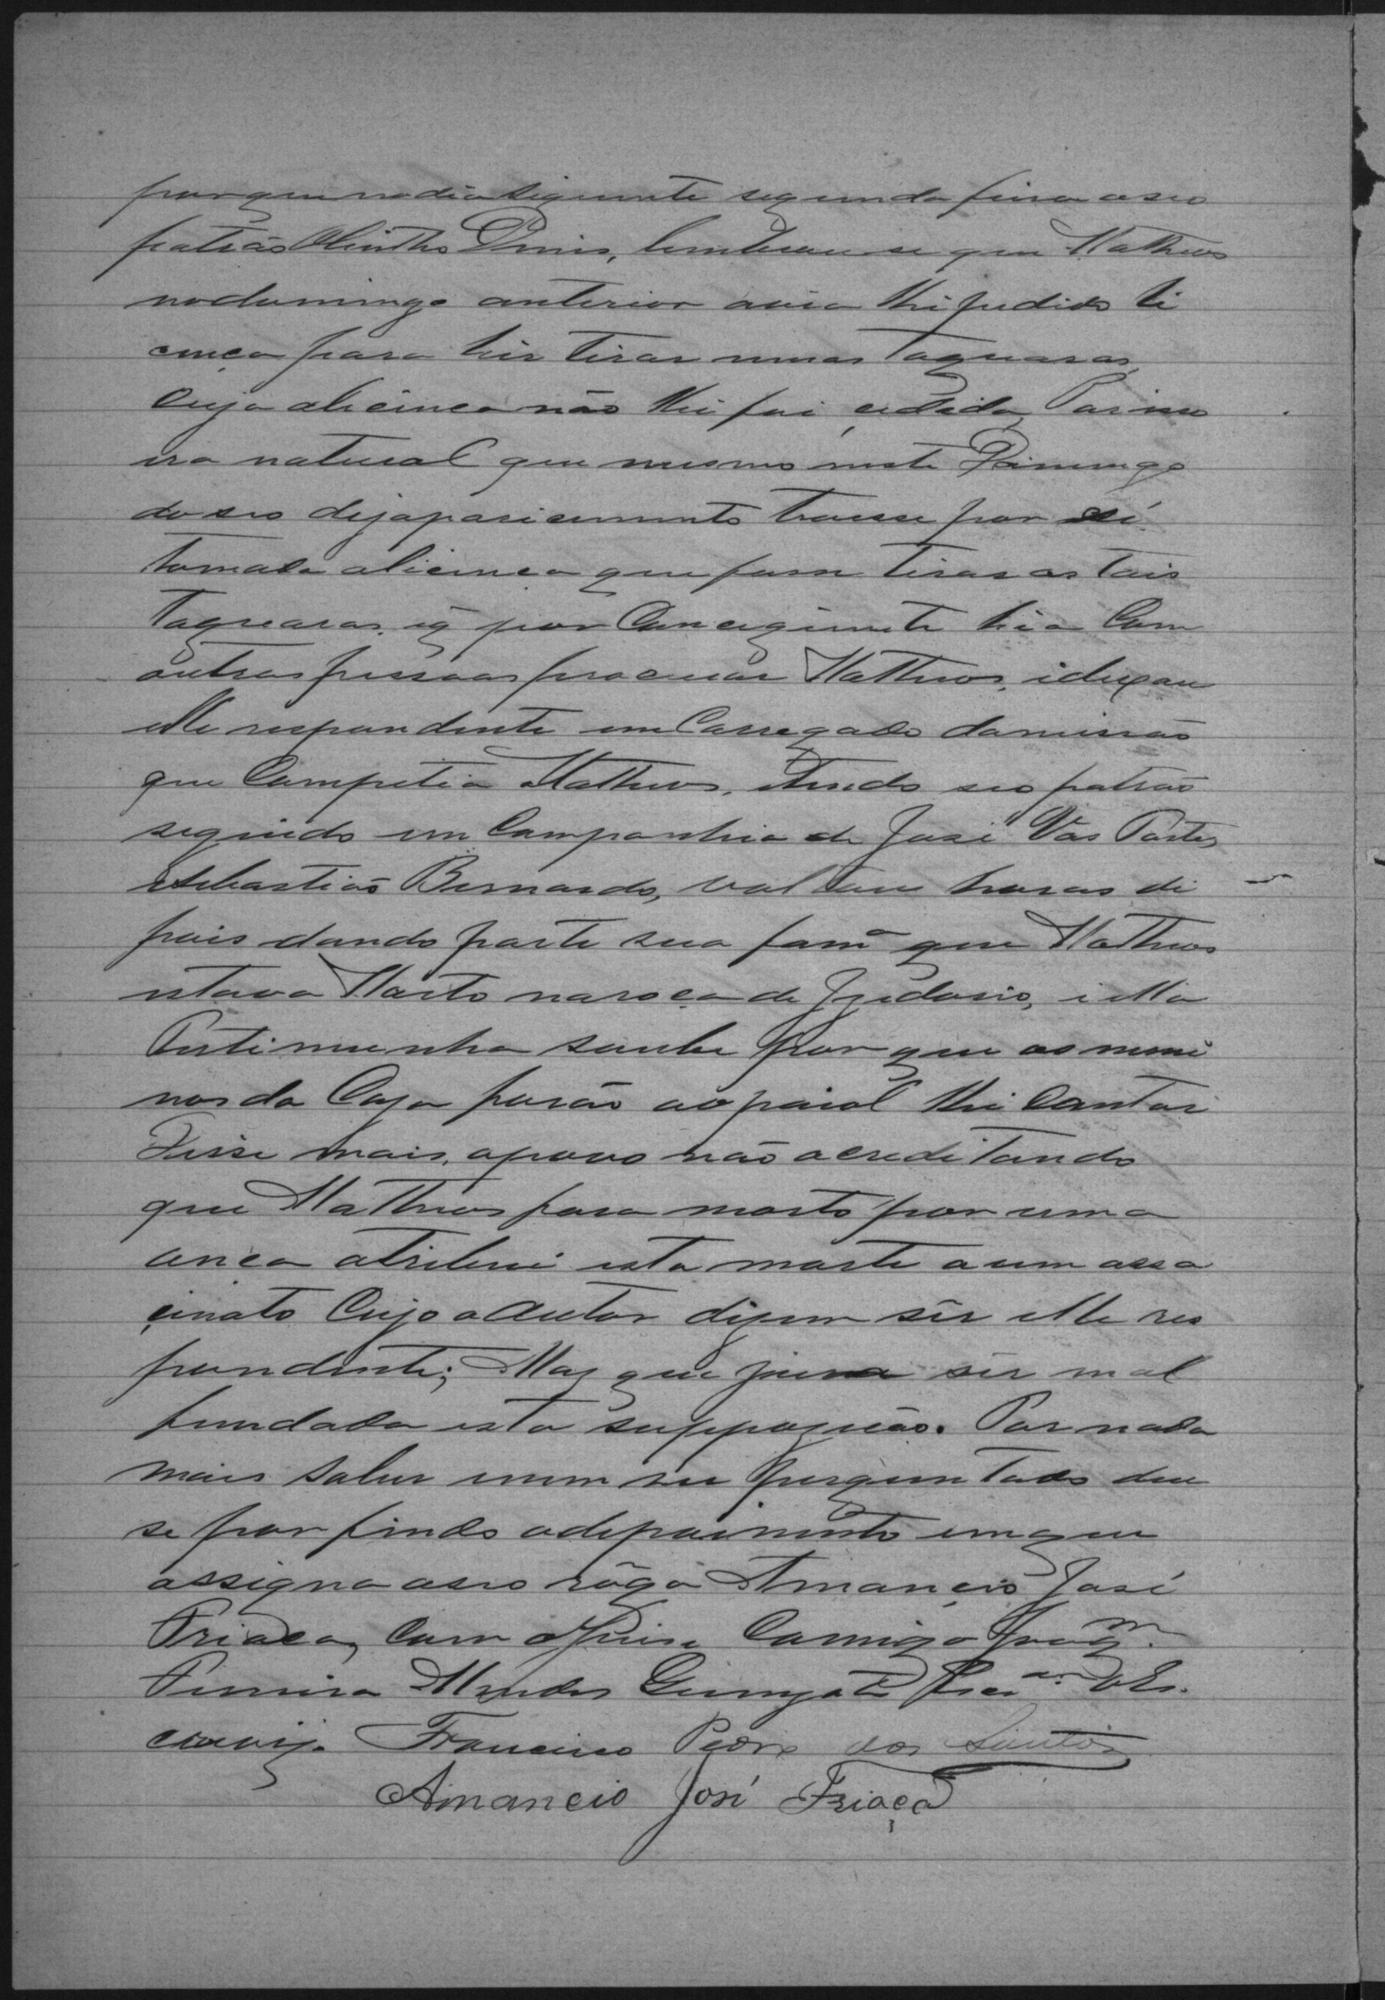 porque no dia siguinte segunda feira a seo
patrão Olintho Diniz, lembrou se que Matheus
no domingo anterior avia lhi pedido li
cença para hir tirar umas taquaras,
cuja alicinca não lhi foi cedida, Por isso
era natural que mesmo neste Domingo
do seo dejaparicimento tivesse por si
tomado alicinca que fosse tirar as tais
taquaras, e por Conceguinte hia Com
outras pessoas procurar Matheus, i deixou
elle respondente em Carregado da missão
que Competia Matheus, e tendo seo patrão
seguido em Companhia de José Vas Pontes
e Sebastião Bernardo, voltou horas de
pois dando parte sua famª que Matheus
estava Morto na roça de Izidorio, i ella
Testimunha soube por que os meni
nos da Caza forão ao paiol lhi Contar
Disse mais, o povo não acreditando
que Matheus fora morto por uma
onça atribui esta morte a um assa
çinato Cujo o autor dizem sêr elle res
pondente; Mas que jura sêr mal
fundada esta supposição. Por nada
mais saber nem ser perguntado deu
se por findo o depoimento em que
assigna a seo rôgo Amancio José
Friaça, Com o Juis e Comigo Joaqm.
Pereira Mendes Escr.
crevi. Francisco Pedro dos Santos
Amancio José Friaça